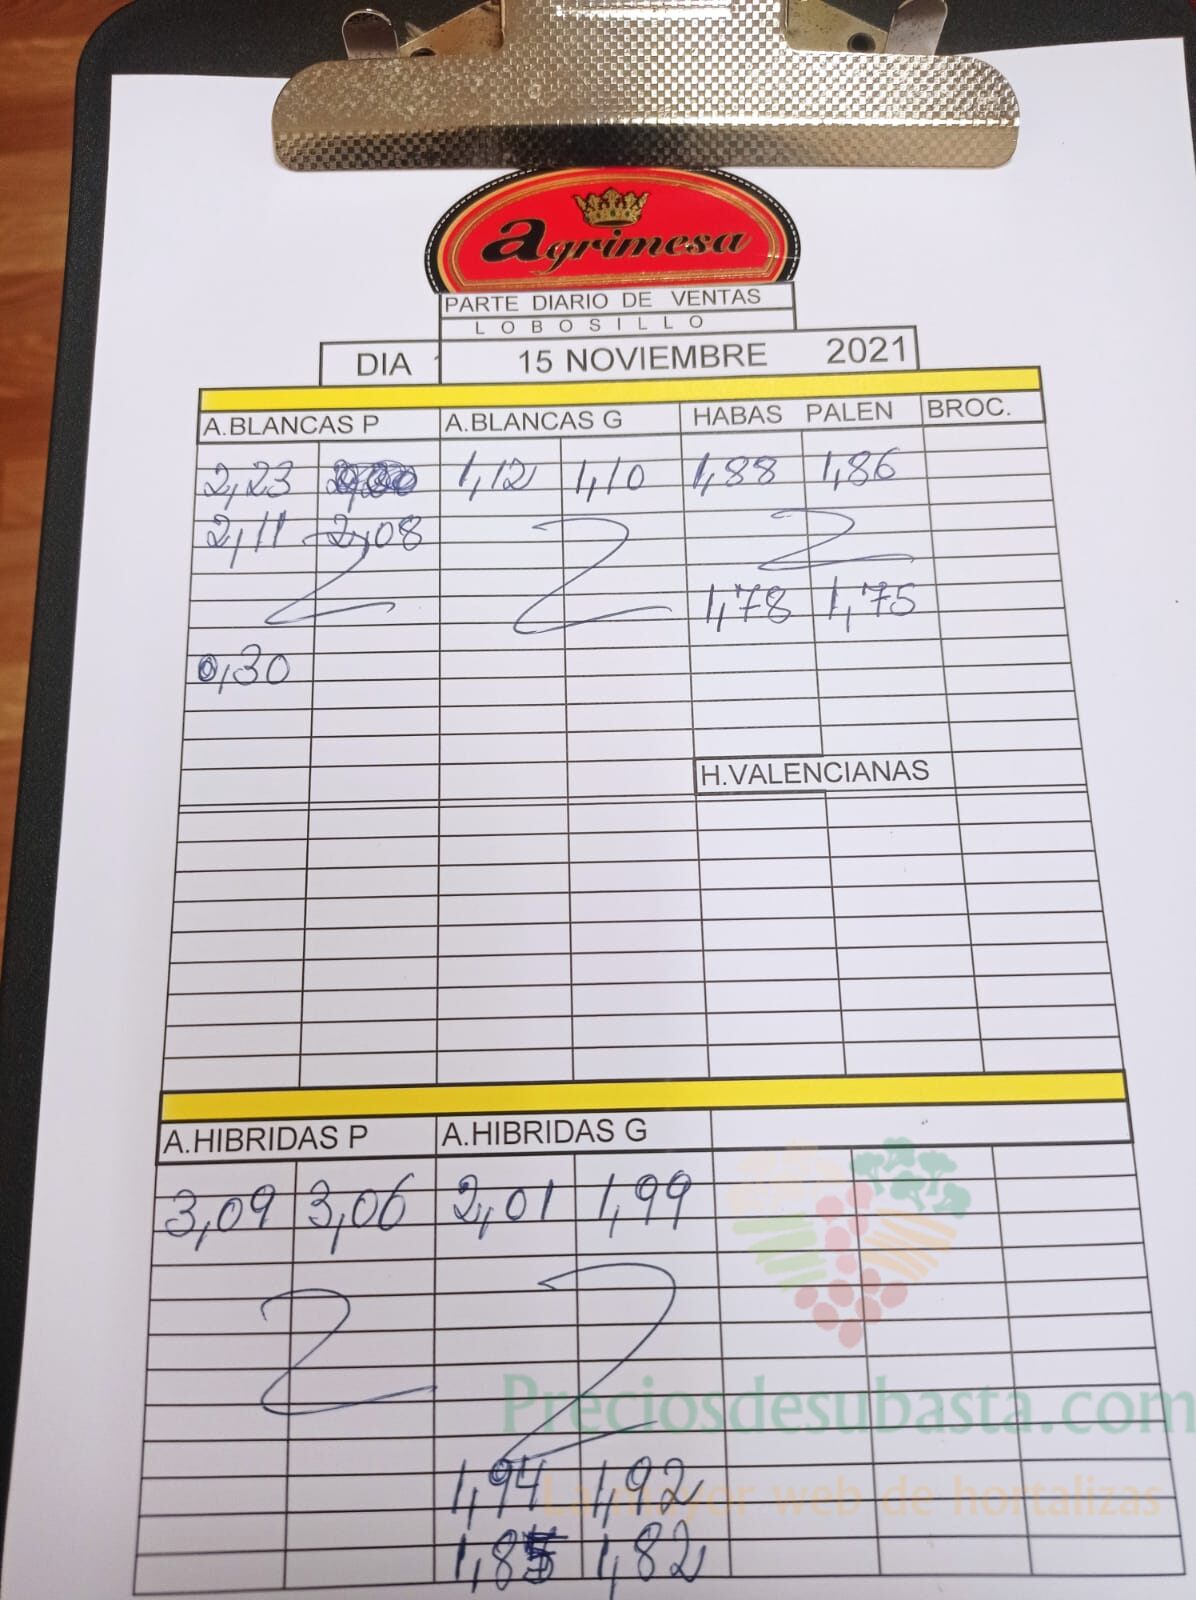 Agrimesa
PARTE DIARIO DE VENTAS
LOBOSILLO
DIA 15 NOVIEMBRE 2021
A.BLANCAS P A.BLANCAS G HABAS PALEN BROC.
2,23 1,12 1,10 1,88 1,86
2,11 2,08
1,78 1,75
0,30
H.VALENCIANAS
A.HIBRIDAS P A.HIBRIDAS G
3,09 3,06 2,01 1,99
Preciosdesubasta.com
1,94 1,92
La mayor web de hortalizas
1,85 1,82